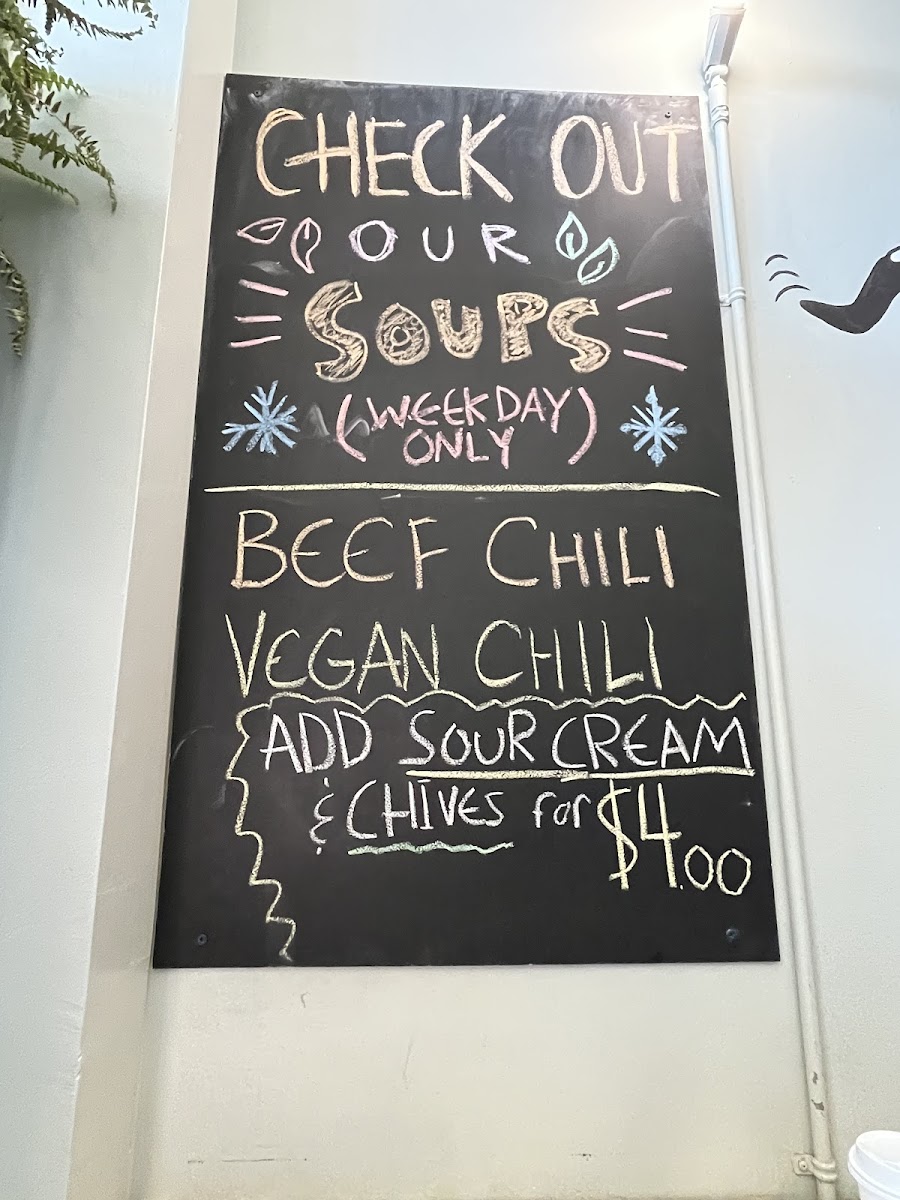 CHECK OUT
OUR
SOUPS
(WEEKDAY
ONLY)
BEEF CHILI
VEGAN CHILI
ADD SOUR CREAM
& CHIVES for $4.00